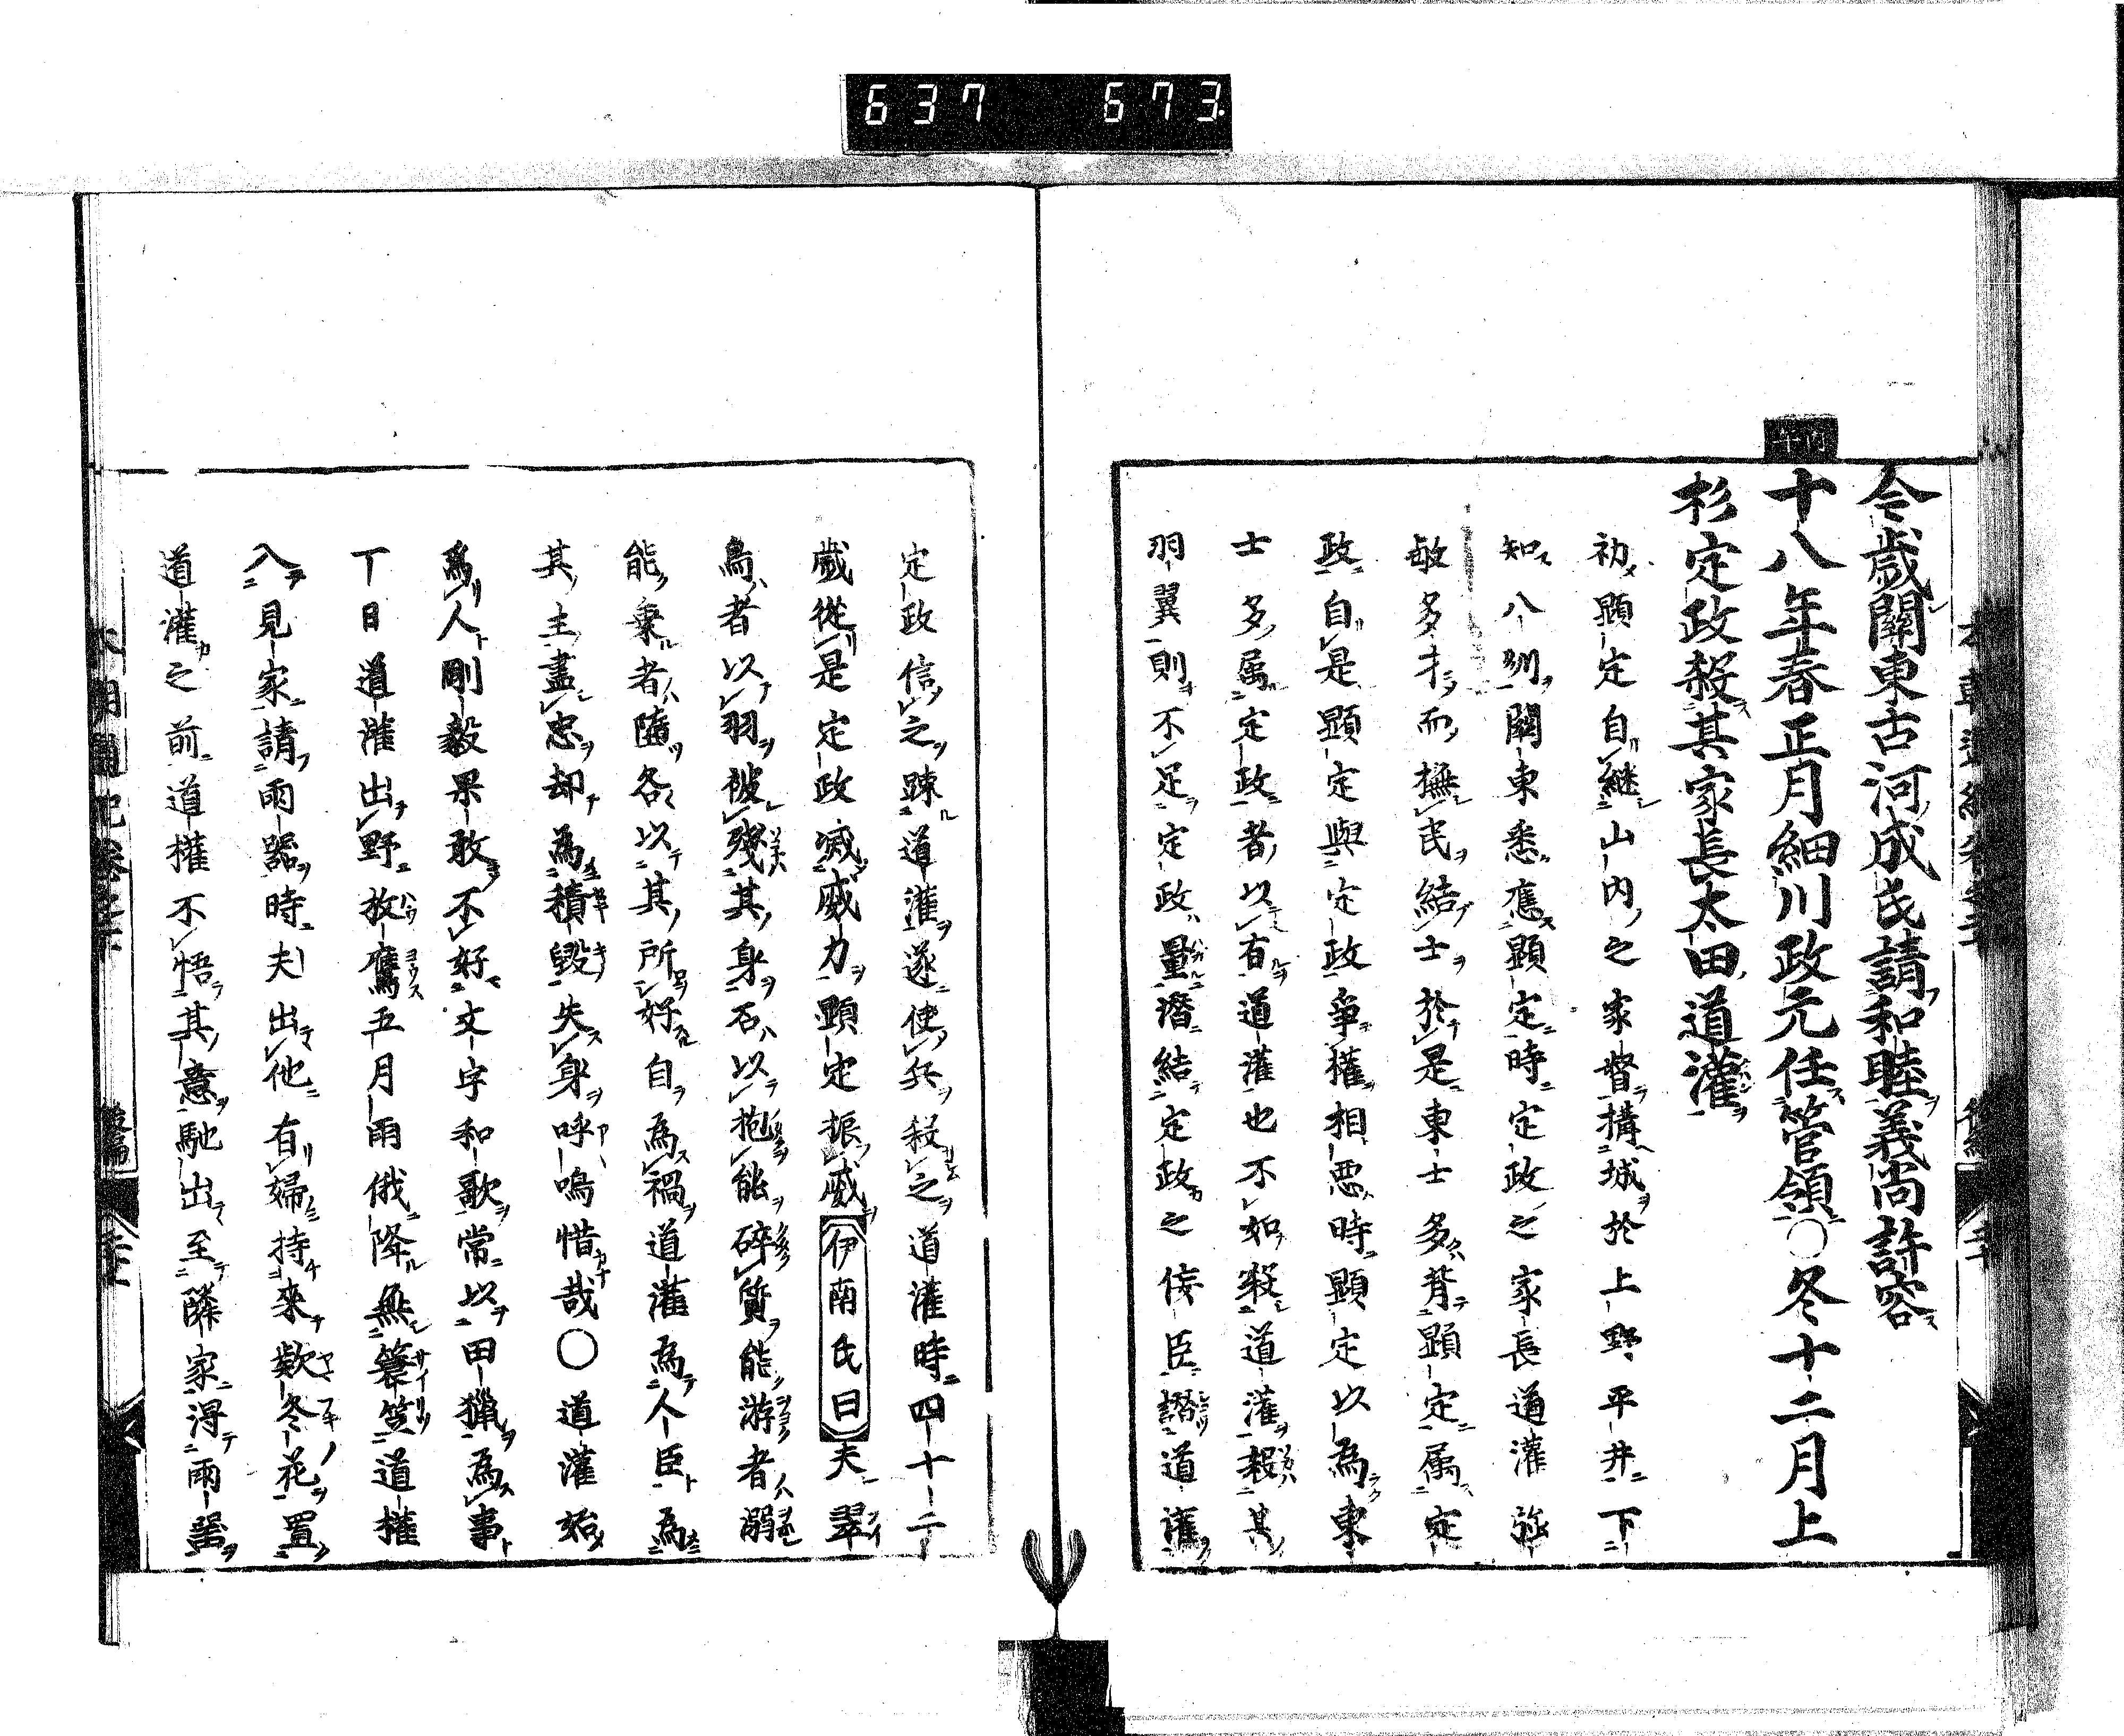 637 673
今歳關東古河成氏請和睦義尚許容
丙午
十八年春正月細川政元任管領〇冬十二月上
杉定政殺其家長太田道灌
初顕定自継山内之家督搆城於上野平井下
知八州關東悉應顕定時定政之家長道灌強
敏多才而撫民結士於是東士多背顕定属定
政自是顕定與定政爭權相悪時顕定以為東
士多属定政者以有道灌也不如殺道灌殺其
羽翼則不足定政量潜結定政之侫臣譖道灌
定政信之踈道灌遂使兵殺之道灌時四十二
歳從是定政减威力顕定振威 伊南氏曰 夫翠
鳥者以羽被殘其身石以抱能碎質能游者溺
能乗者隨各以其所好自為禍道灌為人臣為
其主盡忠却為積毀失身呼嗚惜哉〇道灌始
為人剛毅果敢不好文字和歌常以田獵為事
丁日道灌出野放鷹五月雨俄降無簑笠道權
入見家請雨器時夫出他有婦持來欵冬花置
道灌之前道權不悟其意馳出至隣家淂雨噐